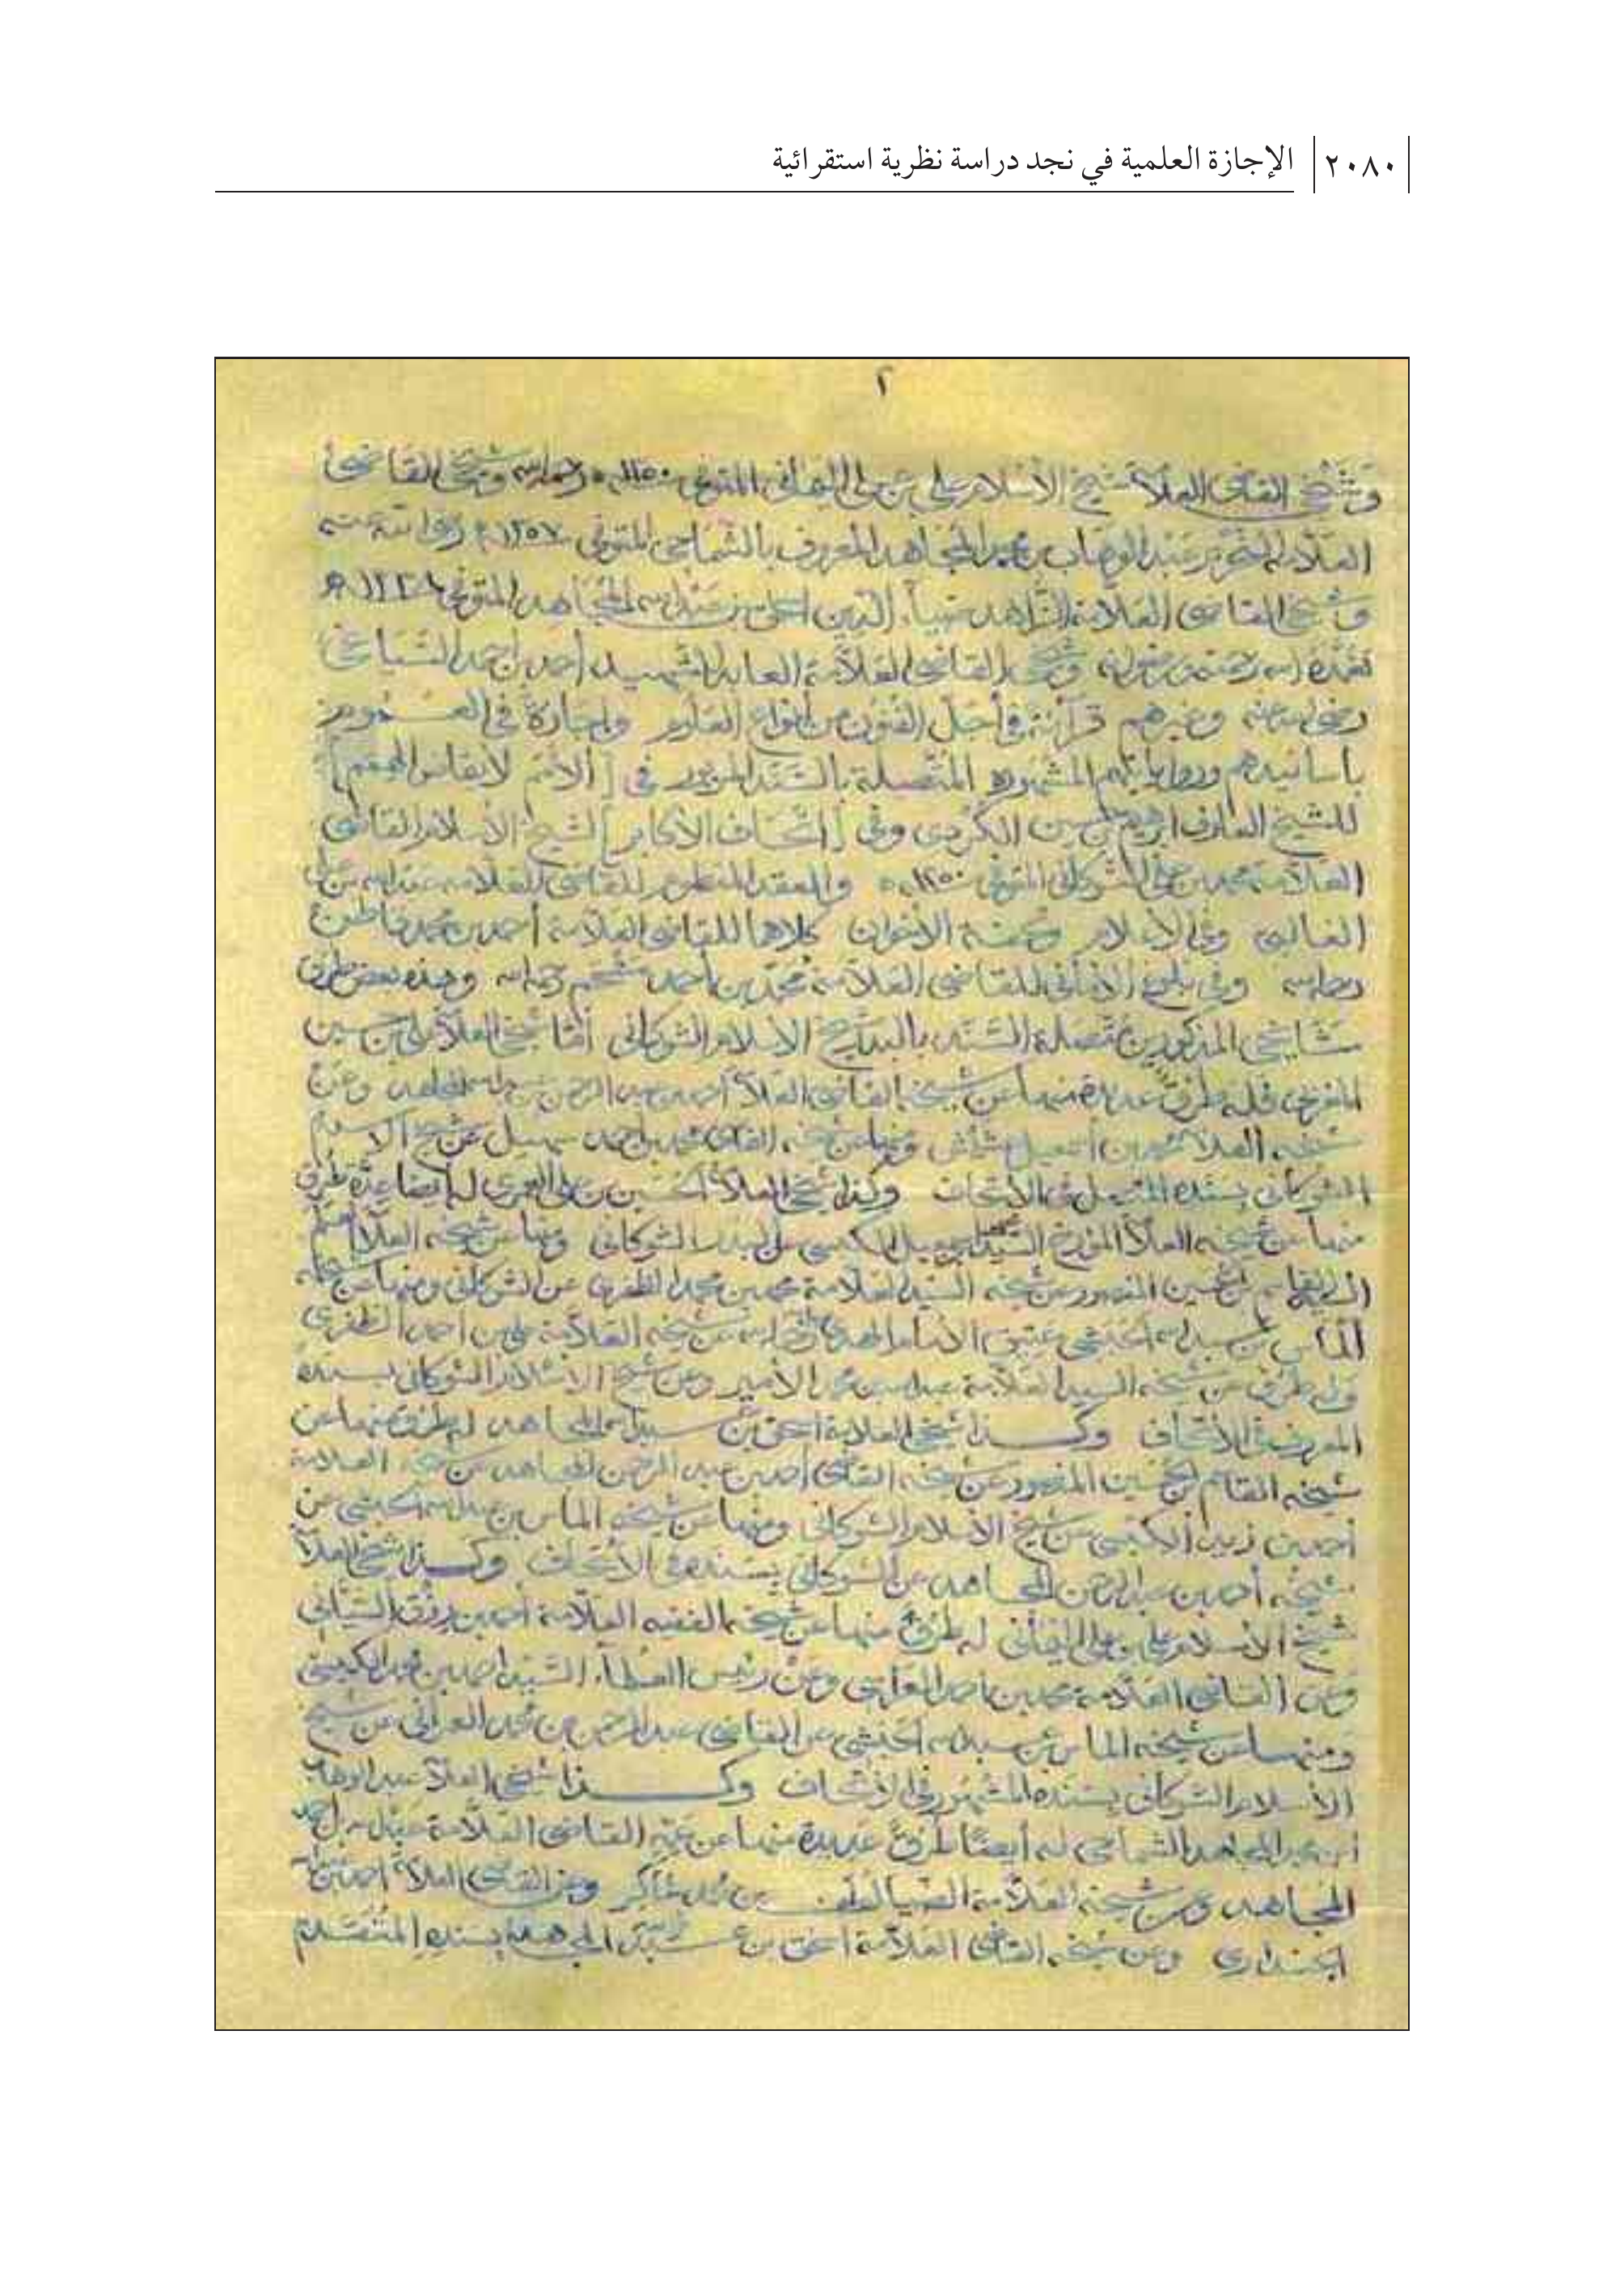 ٢٠٨٠ الإجازة العلمية في نجد دراسة نظرية استقرائية
٢
وشيخي القاضي العلامة شيخ الإسلام علي بن علي اليماني المتوفى رحمه الله وشيخي القاضي
العلامة عبد الوهاب بن محمد المجاهد المعروف بالشماحي المتوفى ١٣٥٧
وشيخي القاضي العلامة الزاهد ضياء الدين إسحاق بن عبد الله المجاهد المتوفى
وشيخي القاضي العلامة العابد الشهيد أحمد بن أحمد السياغي
رضي الله عنه وغيرهم قراءة في أجل الفنون من أنواع العلوم وإجازة في العموم
بأسانيدهم ورواياتهم المشهورة المتصلة بالسند المزبور في [الأمم لإيقاظ الهمم]
للشيخ العارف إبراهيم بن حسن الكردي وفي [إتحاف الأكابر] لشيخ الإسلام القاضي
العلامة محمد بن علي الشوكاني المتوفى والعقد المنظوم للقاضي العلامة عبد الله بن علي
الغالبي وفي الأعلام وتحفة الإخوان كلاهما للقاضي العلامة أحمد بن محمد قاطن
رحمه الله وفي بلوغ الأماني للقاضي العلامة محمد بن أحمد مشحم رحمه الله وهذه بعض طرق
مشايخي المذكورين متصلة السند بالبدر شيخ الإسلام الشوكاني أما شيخي العلامة علي بن حسين
المغربي فله طرق عديدة منها عن شيخه القاضي العلامة أحمد بن عبد الرحمن بن عبد الله المجاهد وعن
شيخه العلامة محمد بن إسمعيل عشيش ومنها عن شيخه القاضي محمد بن أحمد سهيل عن شيخ الإسلام
الشوكاني بسنده المتصل في الإتحاف وكذا شيخي العلامة الحسين بن علي العمري له أيضا عدة طرق
منها عن شيخه العلامة المؤرخ السيد الكبسي عن البدر الشوكاني ومنها عن شيخه العلامة
القاسم بن حسين المنصور عن شيخه السيد العلامة محمد بن محمد الظفري عن الشوكاني ومنها عن شيخه
ألماس بن عبد الله الحبشي عتيق الإمام المهدي عبد الله عن شيخه العلامة علي بن أحمد الظفري
وله طرق عن شيخه السيد العلامة عبد الله بن محمد الأمير وعن شيخ الإسلام الشوكاني بسنده
المعروف في الإتحاف وكذا شيخي العلامة إسحق بن عبد الله المجاهد له طرق منها عن
شيخه القاسم بن حسين المنصور عن شيخه القاضي أحمد بن عبد الرحمن المجاهد عن شيخه العلامة
أحمد بن زيد الكبسي عن شيخ الإسلام الشوكاني ومنها عن شيخه الماس بن عبد الله الحبشي عن
شيخه أحمد بن عبد الرحمن المجاهد عن الشوكاني بسنده في الإتحاف وكذا شيخي العلامة
شيخ الإسلام علي بن علي اليماني له طرق منها عن شيخه الفقيه العلامة أحمد بن رزق السياني
وعن القاضي العلامة محمد بن أحمد العراسي وعن رئيس العلماء السيد أحمد بن محمد الكبسي
ومنها عن شيخه الماس بن عبد الله الحبشي عن القاضي عبد الرحمن بن محمد العمراني عن شيخ
الإسلام الشوكاني بسنده المشهور في الإتحاف وكذا شيخي العلامة عبد الوهاب
بن محمد المجاهد الشماحي له أيضا طرق عديدة منها عن عمه القاضي العلامة عبد الله بن أحمد
المجاهد وعن شيخه العلامة الضياء لطف بن محمد شاكر وعن القاضي العلامة أحمد بن
الجنداري وعن شيخه القاضي العلامة إسحق بن عبد الله المجاهد بسنده المتقدم